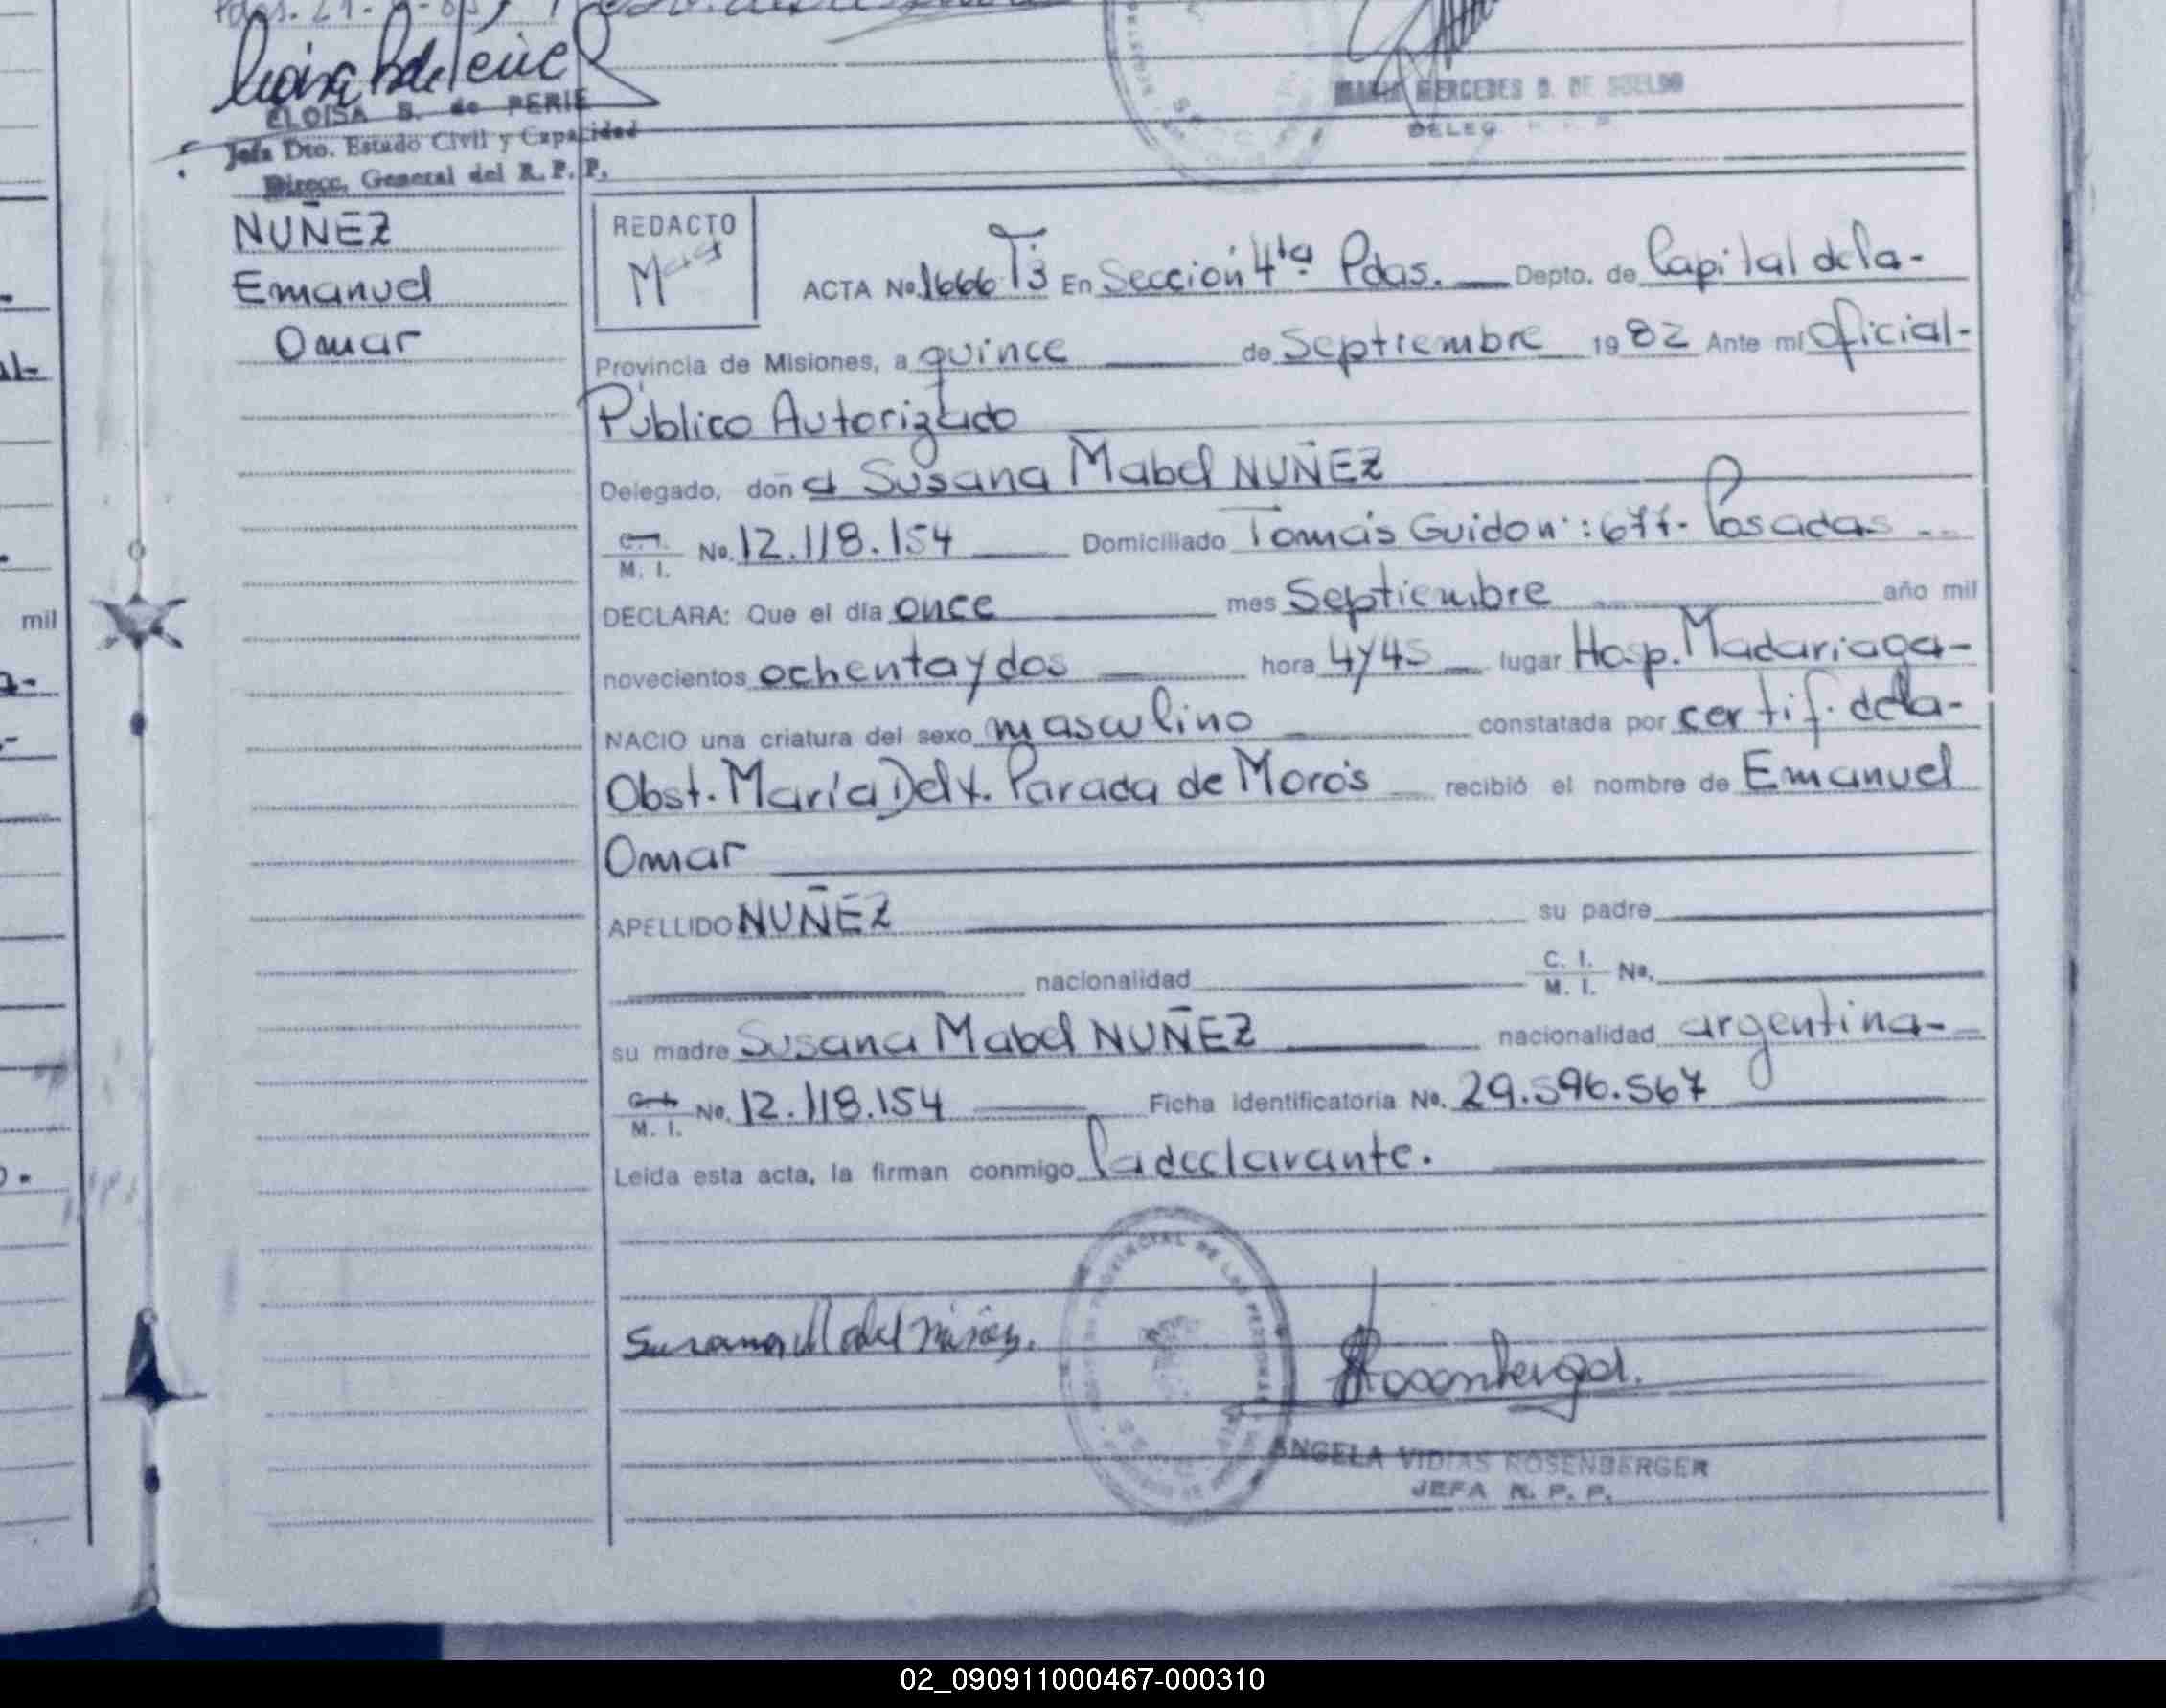 ELOISA B. de PERIE
Jefa Dto. Estado Civil y Capacidad
Direcc. General del R. P. P.
MARIA MERCEDES D. DE SUELDO
DELEG.
NUÑEZ
Emanuel
Omar
REDACTO
ACTA No. 1666 T3 En Sección 4ta Pdas. Depto. de Capital de la-
Provincia de Misiones, a quince de Septiembre 1982 Ante mí Oficial-
Público Autorizado
Delegado, doña Susana Mabel NUÑEZ
C. I. / M. I. No. 12.118.154 Domiciliado Tomás Guido nº: 677- Posadas --
DECLARA: Que el día once mes Septiembre año mil
novecientos ochenta y dos hora 4 y 45 lugar Hosp. Madariaga-
NACIO una criatura del sexo masculino constatada por certif. de la-
Obst. María Del V. Parada de Moro's recibió el nombre de Emanuel
Omar
APELLIDO NUÑEZ su padre
nacionalidad C. I. / M. I. No.
su madre Susana Mabel NUÑEZ nacionalidad argentina-
C. I. / M. I. No. 12.118.154 Ficha identificatoria No. 29.596.567
Leída esta acta, la firman conmigo la declarante.
Susana Mabel Núñez.
Rosenberger.
ANGELA VIDIAS ROSENBERGER
JEFA R. P. P.
mil
02_090911000467-000310